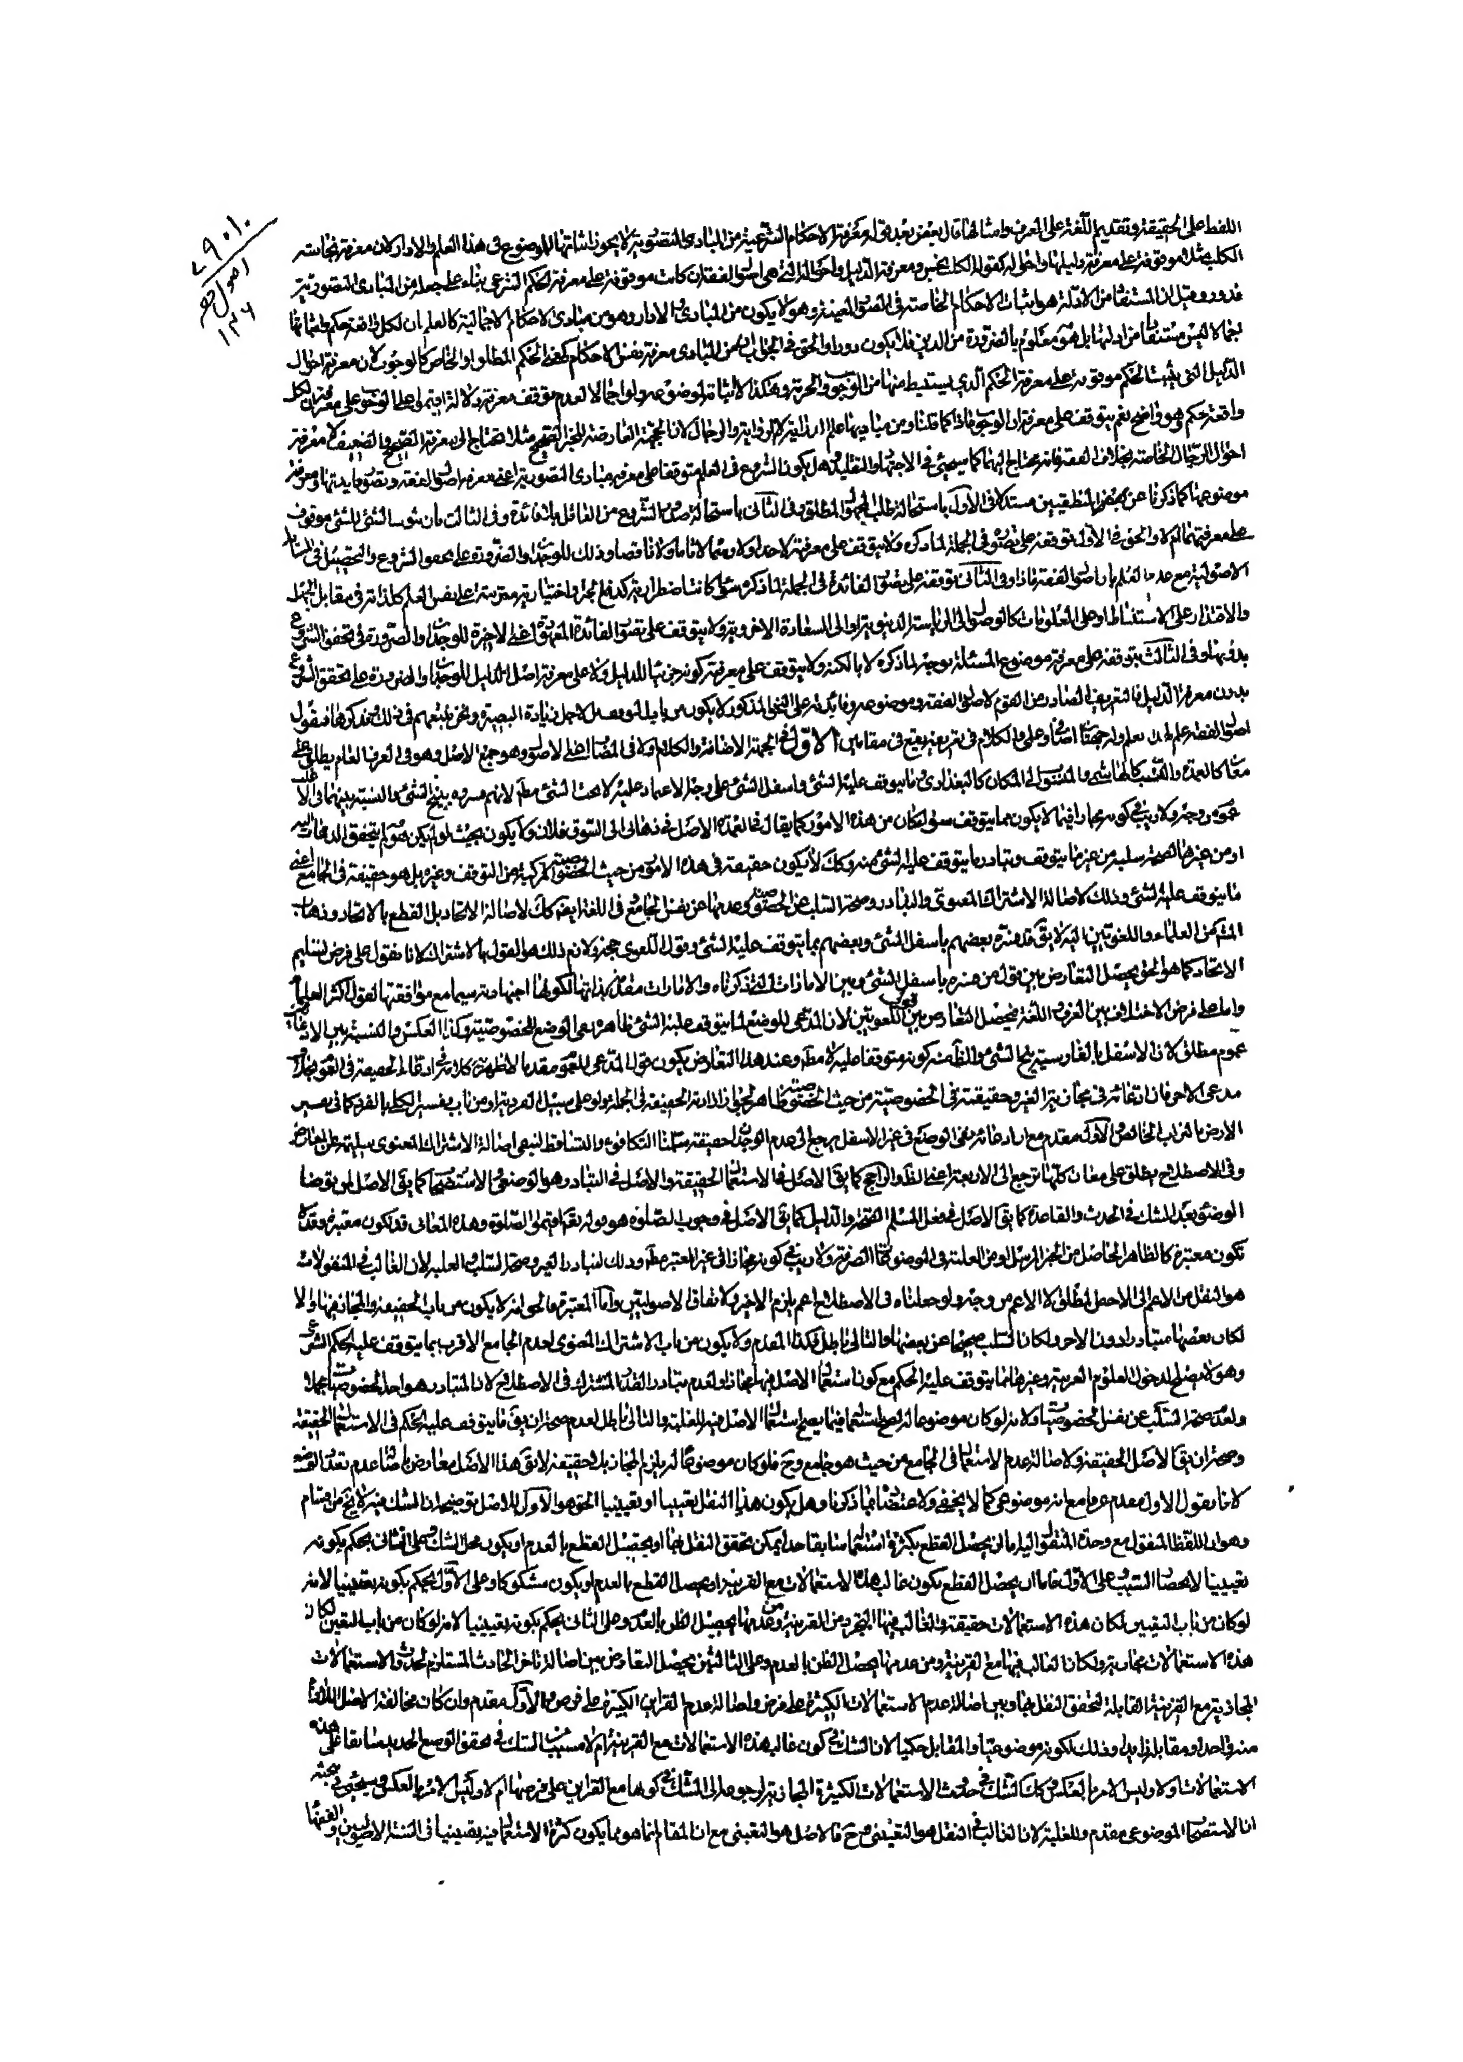 ٧٩٠١٠
اصول فقه
١٣٦
اللفظ على الحقيقة وتقديم اللغة على العرف وامثالها قال بعض بعد قوله ومعرفة الاحكام الشرعية من المبادى التصورية لا يجوز اثباتها للموضوع فى هذا العلم والا دار لان معرفة نجاسة
الكلب مثلا موقوفة على معرفة دليلها واحواله كقوله الكلب نجس ومعرفة الدليل واحواله التى هى اصول الفقه ان كانت موقوفة على معرفة الحكم الشرعى بناء على جعله من المبادى التصورية
فدور وقيل ان المستفاد من الادلة هو اثبات الاحكام الخاصة فى الصور المعينة وهو لا يكون من المبادى والا دار وهو من مبادى الاحكام الاجمالية كالعلم ان لكل واقعة حكم واثباتها
اجمالا ليس مستفادا من ادلتها بل هو معلوم بالضرورة من الدين فلا يكون دورا والحق فى الجواب ان من المبادى معرفة نفس الاحكام كمعنى الحكم المطلق او الخاص كالوجوب لان معرفة احوال
الدليل التى يثبت الحكم موقوفة على معرفة الحكم الذى يستنبط منها من الوجوب والحرمة وهكذا لا اثباته لموضوعه ولو اجمالا لعدم توقف معرفة دلالة اقيموا على الوجوب على معرفة ان لكل
واقعة حكم وهو واضح نعم يتوقف على معرفة ان الوجوب ماذا كما قلنا ومن مباديها علم الدراية لا الرواية والرجال لان الحجة العارضة للخبر الصحيح مثلا تحتاج الى معرفة الصحيح والضعيف لا معرفة
احوال الرجال الخاصة بخلاف الفقه فانه يحتاج اليهما كما سيجئ فى الاجتهاد والتقليد هل يكون الشروع فى العلم متوقفا على معرفة مبادى التصورية اعنى معرفة اصول الفقه وتصور فايدتها ومعرفة
موضوعها كما ذكرنا عن بعض المنطقيين مستدلا فى الاول باستحالة طلب المجهول المطلق وفى الثانى باستحالة صدور الشروع من الفاعل بلا فائدة وفى الثالث بان
على معرفتها ام لا والحق فى الاول توقفه على تصوره فى الجملة لما ذكره ولا يتوقف على معرفته لا حدا ولا رسما لا تاما ولا ناقصا وذلك للوجدان والضرورة على تحقق الشروع والتحصيل فى
الاصولية مع عدم العلم بان اصول الفقه ماذا وفى الثانى توقفه على تصور الفائدة فى الجملة لما ذكره سواء كانت اضطرارية كدفع ... او اختيارية مترتبة على نفس العلم
والاقتدار على الاستنباط او على المعلومات كالوصول الى الرياسة الدنيوية او الى السعادة الاخروية ولا يتوقف على تصور الفائدة المعهودة اعنى الاخيرة للوجدان والضرورة فى تحقق الشروع
بدونها وفى الثالث يتوقفه على معرفة موضوع المسئلة بوجه لما ذكره لا بالكنه ولا يتوقف على معرفة كونه جزئيا للدليل ولا على معرفة اصل الدليل للوجدان والضرورة على تحقق الشروع
بدون معرفة الدليل فالتعريف الصادر من القوم لاصول الفقه وموضوعه وفايدته على النحو المذكور لا يكون من باب التوقف بل لاجل زيادة البصيرة ونحن نتبعهم فى ذلك بعد ذكرها فنقول
اصول الفقه علم ... والكلام فى تعريفه يقع فى مقامين الاول فى الجهة الاضافة والكلام اولا فى المضاف اعنى الاصول وهو جمع الاصل وهو فى العرف العام يطلق على
معان كالعمدة والنسب كالهاشمى والمنسوب الى المكان كالبغدادى وما يتوقف عليه الشئ واسفل الشئ على وجه الاعتماد عليه
عموم من وجه ولا ريب فى كونه مجازا فيما لا يكون مما يتوقف سواء كان من هذه الامور كما يقال فالعمدة الاصل فى ذهابى الى السوق فلان ولا يكون بحيث لو لم يكن هو لم يتحقق الذهاب
او من غيرها لصحة سلبه من غير ما يتوقف وتبادر ما يتوقف عليه الشئ منه وكك لا يكون حقيقة فى هذه الامور من حيث الخصوصية المركبة من التوقف وغيره بل هو حقيقة فى الجامع اعنى
ما يتوقف عليه الشئ وذلك لاصالة الاشتراك المعنوى والتبادر وصحة السلب عن الخصوصية وعدمها عن نفس الجامع فى اللغة ايضا كك لاصالة الاتحاد بل القطع بالاتحاد وذهاب
... من العلماء واللغويين اليه لا يقال قد فسره بعضهم باسفل الشئ وبعضهم بما يتوقف عليه الشئ وقول اللغوى حجة ولازم ذلك هو القول بالاشتراك لانا نقول على فرض تسليم
الاتحاد كما هو الحق يحصل التعارض بين قول من فسره باسفل الشئ وبين الامارات التى ذكرناه والامارات مقدمة لذاتها لكونها اجتهادية سيما مع موافقتها لقول اكثر العلماء
واما على فرض الاختلاف بين العرف واللغة فيحصل التعارض بين قول اللغويين لان المدعى للوضع لما يتوقف عليه الشئ ظاهره نفى الوضع للخصوصية وكذا العكس والنسبة بين
عموم مطلق لان الاسفل بالفارسية بيخ الشئ والظ منه كونه متوقفا عليه لا مطلقا وعند هذا التعارض يكون قول المدعى للعموم مقدما لاظهرية كلامه فى ارادته الحقيقة فى العموم بخلاف
مدعى الاخر فان ادعائه فى مجازية الغير وحقيقته فى الخصوصية من حيث الخصوصية ظاهر لجواز ارادته الحقيقة فى الجملة ولو على سبيل الفردية او من باب تفسير الكلى بالفرد كما فى تفسير
الارض بالتراب الخالص والاول مقدم مع ان ادعائه نفى الوضع فى غير الاسفل يرجع الى عدم الوجدان حقيقة سلمنا التكافؤ والتساقط فتبقى اصالة الاشتراك المعنوى سليمة عن المعارض
وفى الاصطلاح يطلق على معان كلها ترجع الى الاربعة اعنى الظ والراجح كما يقال الاصل فى الاستعمال الحقيقة والاصل فى التبادر هو الوضعى والاستصحاب كما يقال الاصل لمن توضأ
الوضوء بعد الشك فى الحدث والقاعدة كما يقال الاصل فى فعل المسلم الصحة والدليل كما يقال الاصل فى وجوب الصلوة هو قوله تعالى اقيموا الصلوة وهذه المعانى قد تكون معتبرة وقد لا
تكون معتبرة كالظاهر الحاصل من الخبر المرسل ومن الغلبة فى الموضوعات الصرفة ولا ريب فى كونه مجازا فى غير المعتبر مطلقا وذلك لتبادر الغير وصحة السلب والغلبة لان الغالب فى المنقولات
هو النقل من الاعم الى الاخص المطلق لا الاعم من وجه ولو جعلناه فى الاصطلاح اعم يلزم الاخير ولاتفاق الاصوليين واما المعتبرة فالحق انه لا يكون من باب الحقيقة والمجاز فيها والا
لكان بعضها متبادرا دون الاخر ولكان السلب صحيحا عن بعضها والتالى باطل فكذا المقدم ولا يكون من باب الاشتراك المعنوى لعدم الجامع الاقرب بما يتوقف عليه الحكم الشرعى
وهو لا يصلح لدخول العلوم العربية وغيرها فيما يتوقف عليه الحكم مع كون استعمال الاصل فيها مجازا ولعدم تبادر القدر المشترك فى الاصطلاح لان المتبادر هو احد الخصوصيات اجمالا
ولعدم صحة السلب عن نفس الخصوصيات ولانه لو كان موضوعا له لصح استعماله فيما يصح استعمال الاصل فيه للغلبة والتالى باطل لعدم صحة ان يقال ما يتوقف عليه الحكم فى الاستعمال الحقيقة
وصحة ان يقال الاصل الحقيقة ولاصالة عدم الاستعمال فى الجامع من حيث هو جامع وح فلو كان موضوعا له يلزم المجاز بلا حقيقة لا يقال هذا الاصل معارض باصالة عدم تعدد الوضع
لانا نقول الاول مقدم عرفا مع انه موضوعى كما لا يخفى ولاعتضادنا بما ذكرنا وهل يكون هذا النقل تعيينيا او تعينيا الحق هو الاول للاصل توضيحه ان الشك فيه لا يخ من اقسام
وهو ان اللفظ المنقول مع وحدة المنقول اليه اما ان يحصل القطع بكثرة استعماله سابقا حد يمكن تحقق النقل بها او يحصل القطع بالعدم او يكون محل الشك وعلى الثانى يحكم بكونه
تعيينيا لانحصار السبب وعلى الاول فاما ان يحصل القطع بكون غالب هذه الاستعمالات مع القرينة او يحصل القطع بالعدم او يكون مشكوكا وعلى الاول يحكم بكونه تعيينيا لانه
لو كان من باب التعيين لكان هذه الاستعمالات حقيقة والغالب فيها التجرد من القرينة ومن عدمها يحصل الظن بالعدم وعلى الثانى يحكم بكونه تعيينيا لانه لو كان من باب التعين لكان
هذه الاستعمالات مجازية ولكان الغالب فيها مع القرينة ومن عدمها يحصل الظن بالعدم وعلى الثالث فيحصل التعارض بين اصالة تاخر الحادث المستلزم لحدوث الاستعمالات
المجازية مع القرينة القابلة لتحقق النقل بها وبين اصالة عدم الاستعمالات الكثيرة على فرض واصالة عدم القراين الكثيرة على فرض والاول مقدم وان كان مخالفة الاصل اللازم
منه واحدا ومقابله زايد وذلك لكونه موضوعيا والمقابل حكميا لان الشك فى كون غالب هذه الاستعمالات مع القرينة ام لا مسبب من الشك فى تحقق الوضع الجديد سابقا على هذه
الاستعمالات اولا وليس الامر بالعكس وكك الشك فى حدوث الاستعمالات الكثيرة المجازية لرجوعه الى الشك فى كونها مع القراين على فرضها ام لا وليس الامر بالعكس وسيجئ فى مبحثه
ان الاستصحاب الموضوعى مقدم وللغلبة لان الغالب فى النقل هو التعينى وح فالاصل هو التعينى مع ان المقام انما هو مما يكون كثرة الاستعمال فيه يقينيا فى السنة الاصوليين والفقهاء